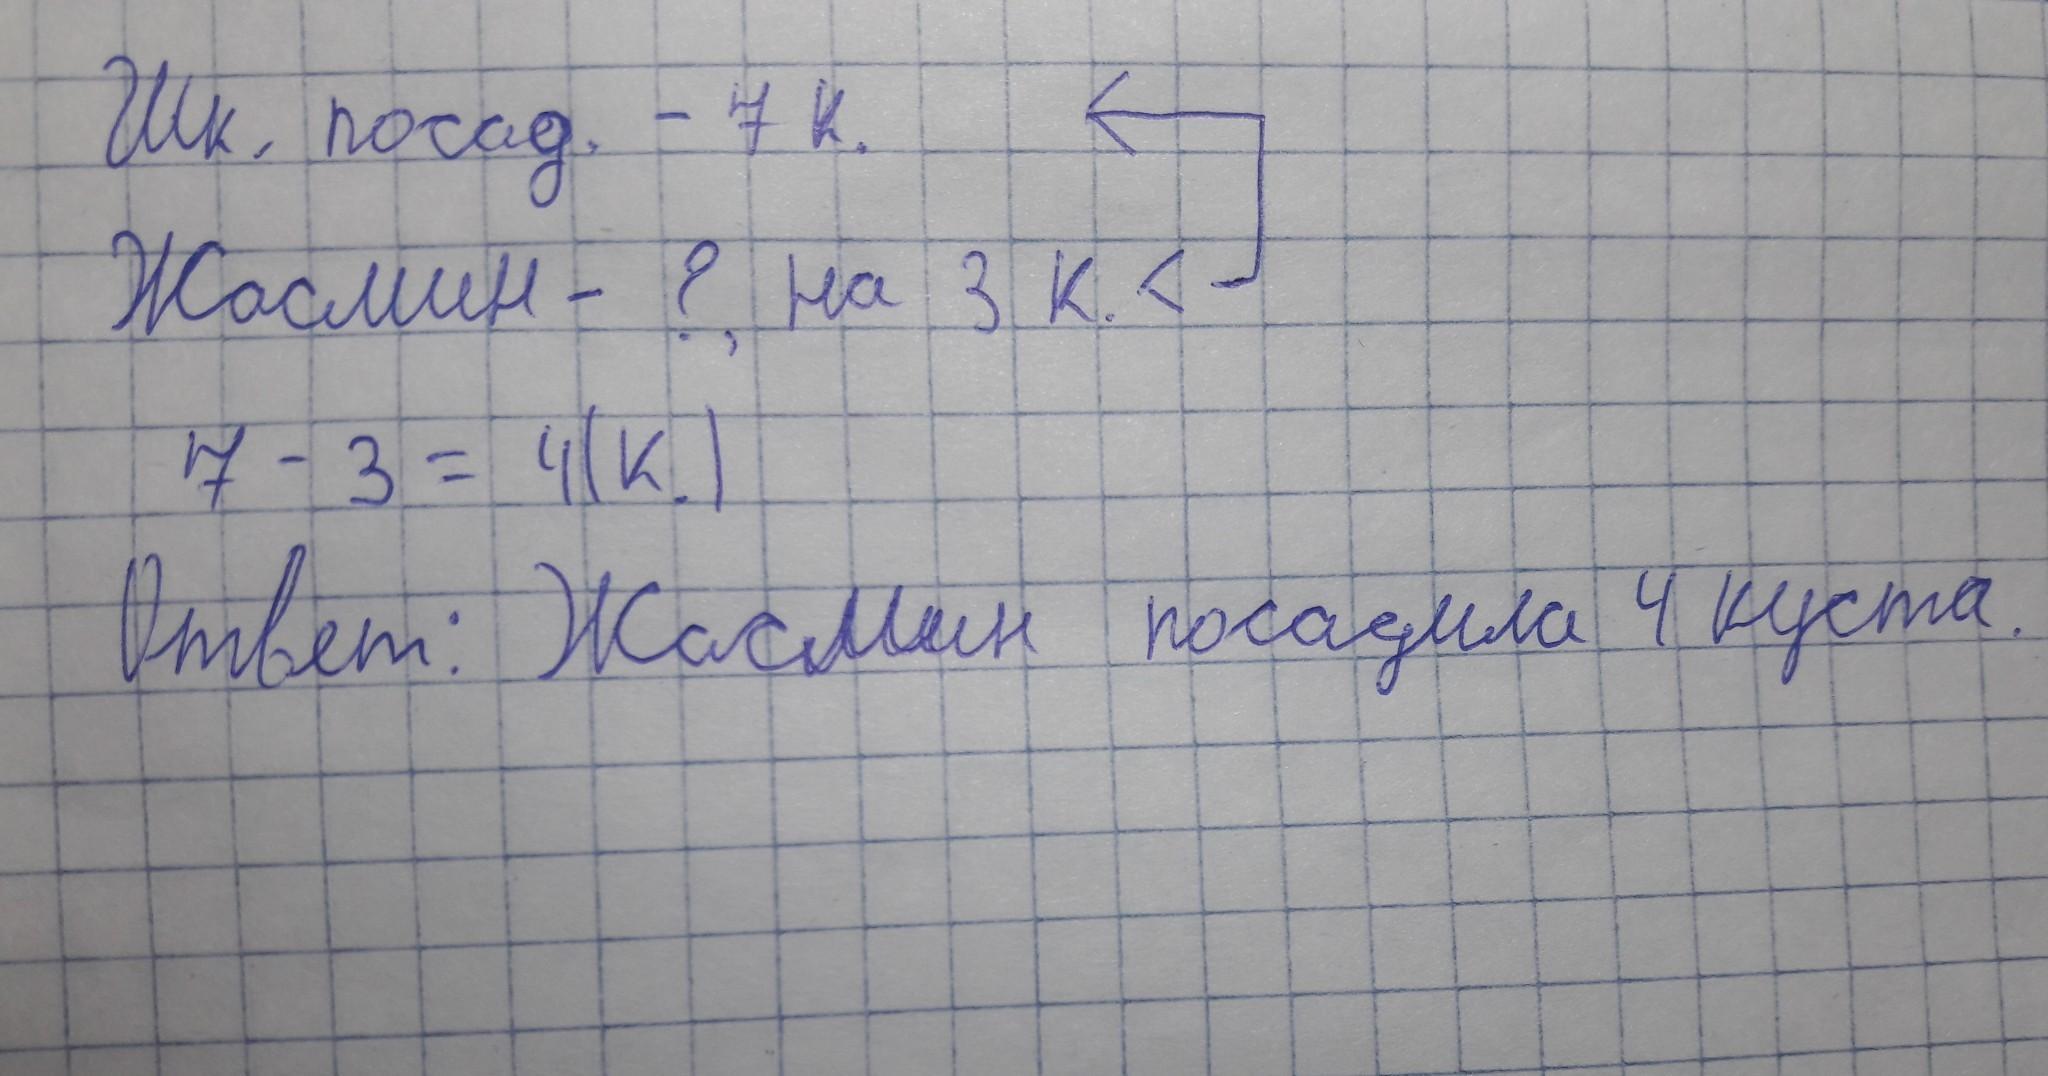 Шк. посад. - 7 к.
Жасмин - ?, на 3 к. <
7 - 3 = 4 (к.)
Ответ: Жасмин посадила 4 куста.